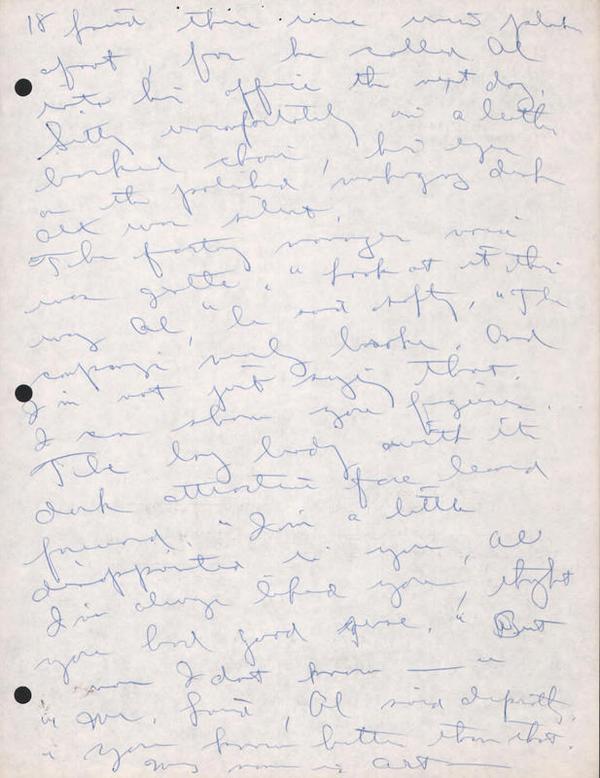 18 found there were new plots
afoot, for he called Al
into his office the next day.
Sitting uncomfortably in a leather
backed chair, his eyes
on the polished, mahogany desk
Al was silent.
The factory manager voice
was gentle. "Look at it this
way Al," he said softly, "The
company's nearly broke. And
I'm not just saying that.
I can show you figures.
The long body with its
dark attractive face leaned
forward. "I'm a little
disappointed in you, Al
I've always liked you, thought
you had good sense." But
now I don't know — "
"Mr. Al said
"you know better than that.
my name is art —